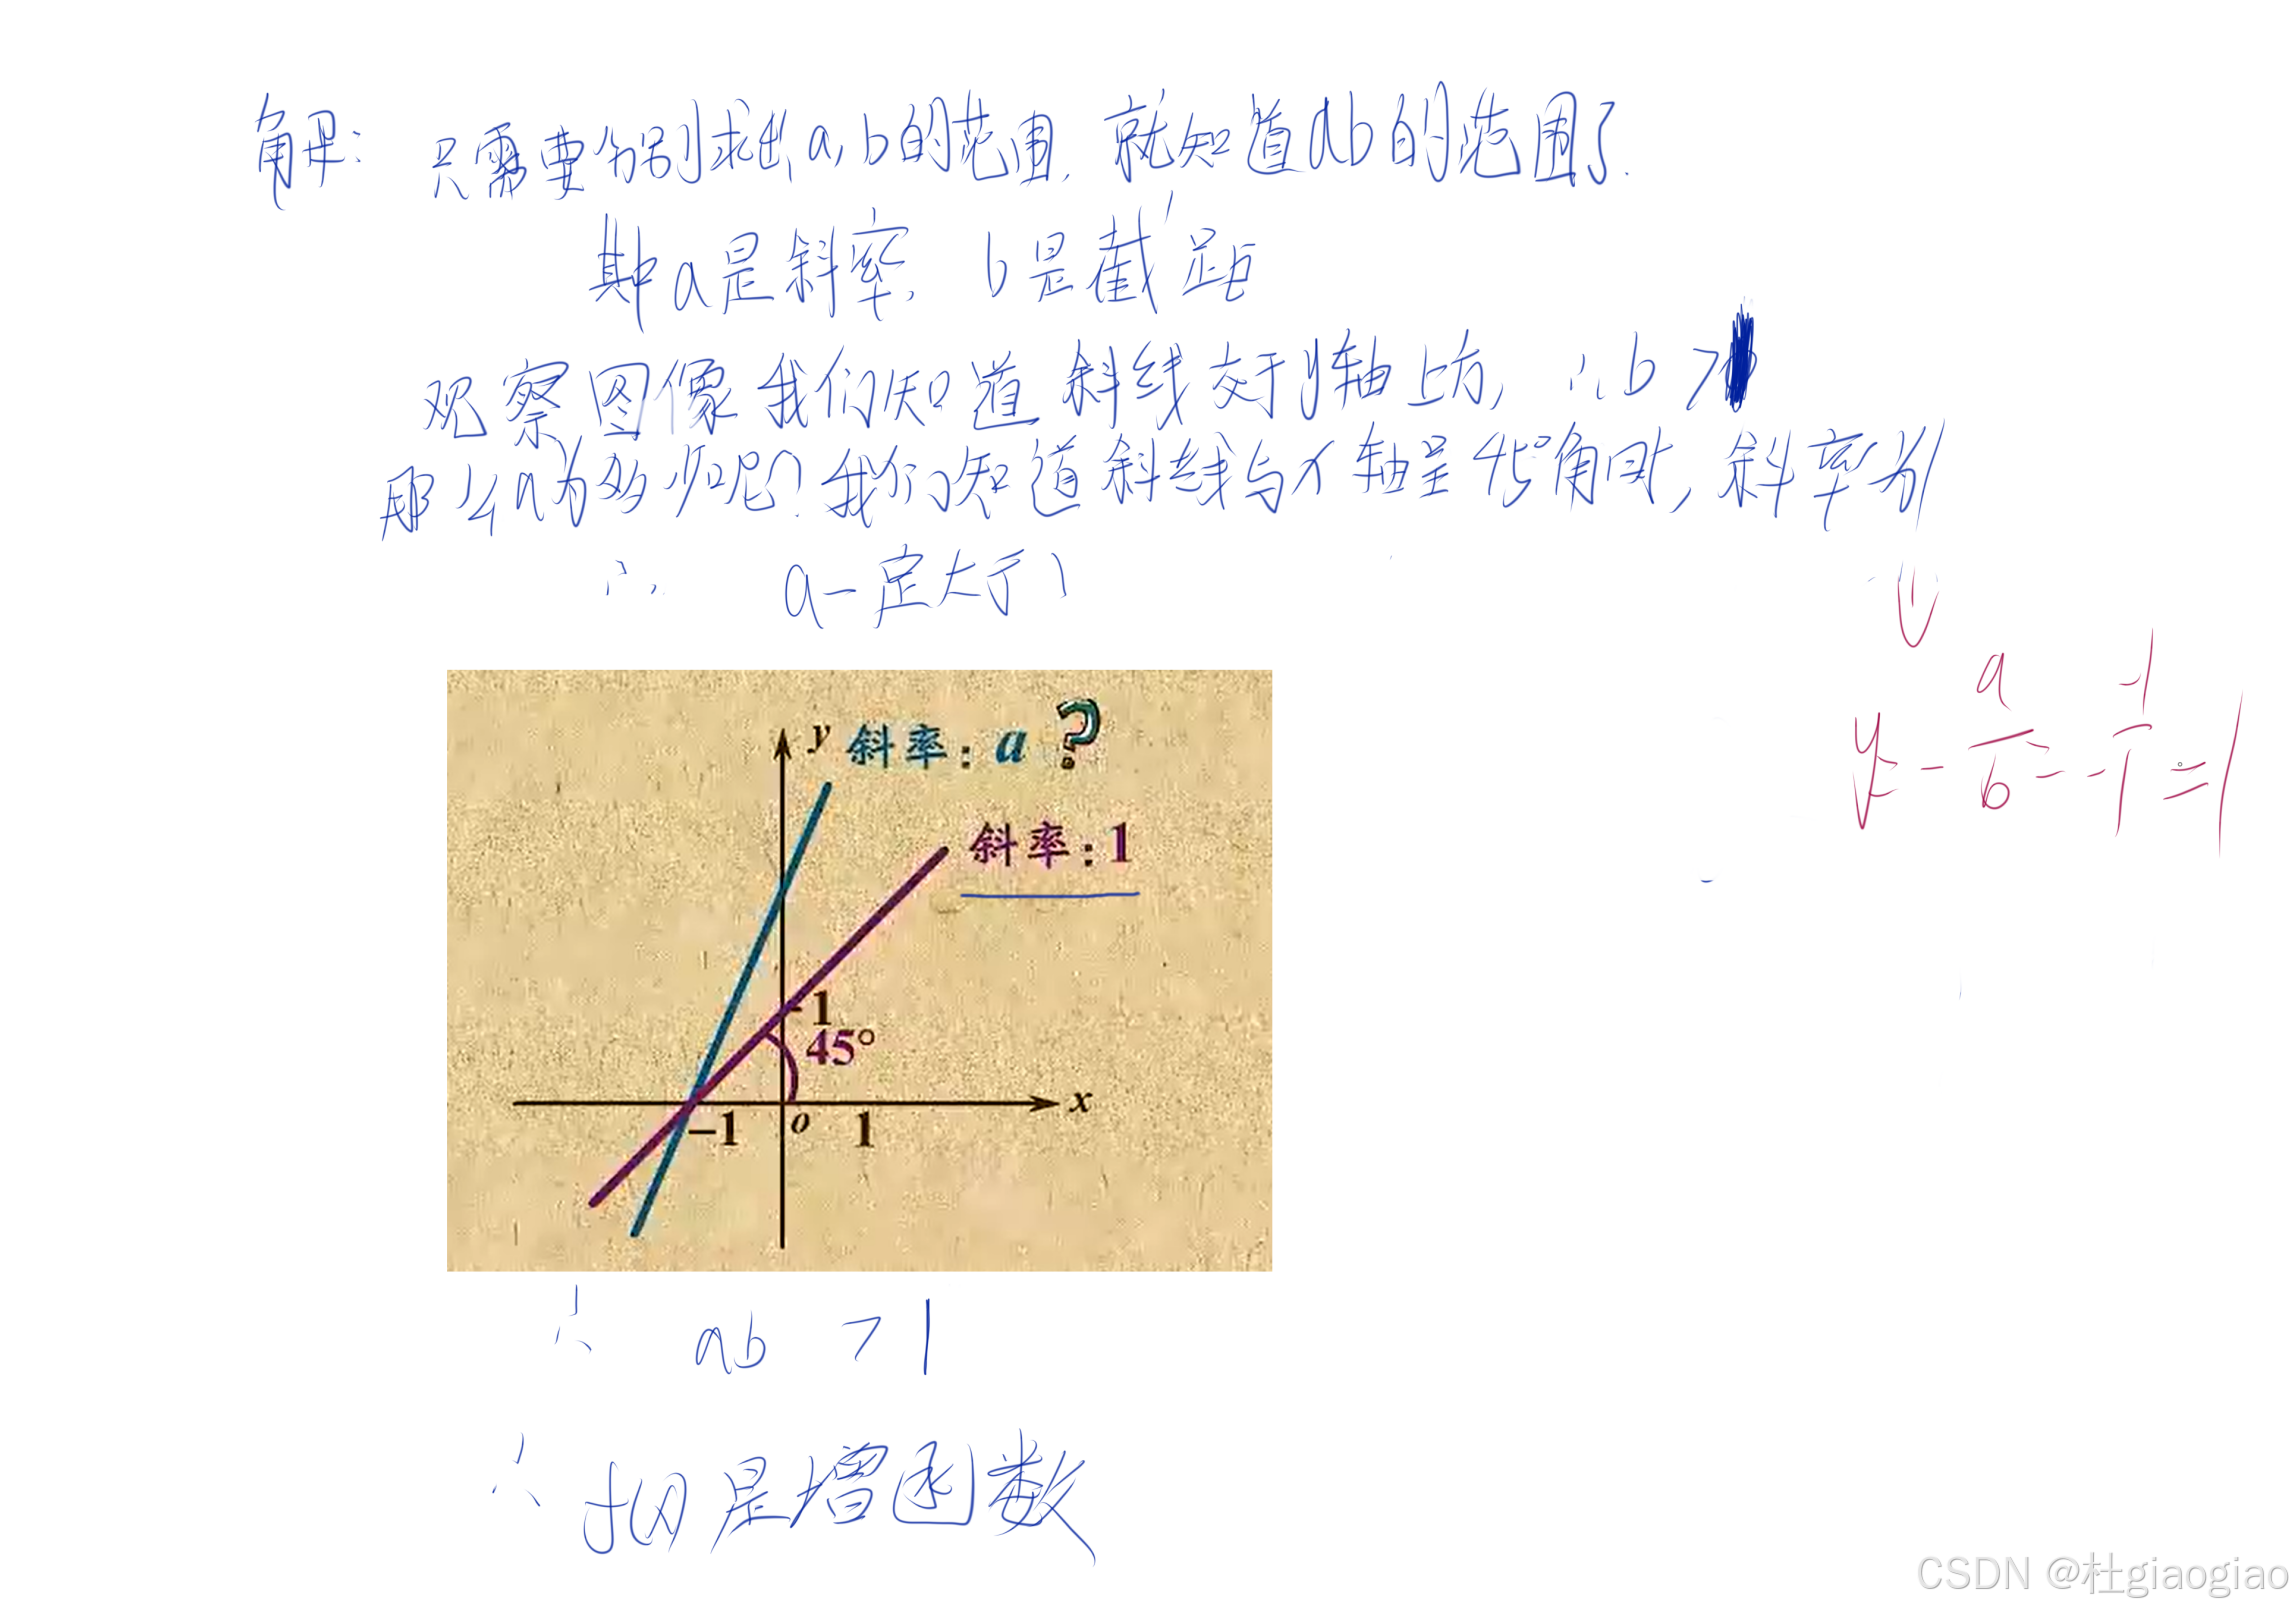 解: 只需要分别求出a,b的范围,就知道ab的范围了.
其中a是斜率,b是截距
观察图像我们知道斜线交于y轴上方,∴b>
那么a为多少呢?我们知道斜线与x轴呈45°角时,斜率为1
∴ a一定大于1
k=-a/b=--1/1=1
y 斜率:a?
斜率:1
1
45°
x
-1 o 1
∴ ab >1
∴ f(x)是增函数
CSDN @杜giaogiao